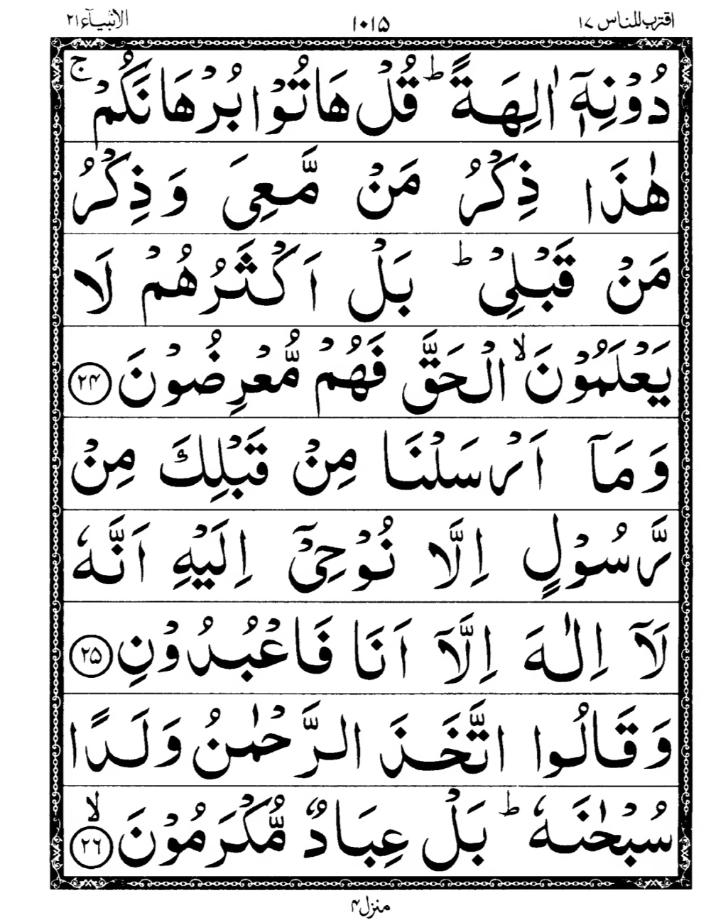 اقترب للناس ۱۷ ۱۰۱۵ الانبیآء ۲۱
دُوْنِهٖۤ اٰلِهَةً ؕ قُلْ هَاتُوْا بُرْهَانَكُمْ ۚ
هٰذَا ذِكْرُ مَنْ مَّعِیَ وَ ذِكْرُ
مَنْ قَبْلِیْ ؕ بَلْ اَكْثَرُهُمْ لَا
یَعْلَمُوْنَ ۙ الْحَقَّ فَهُمْ مُّعْرِضُوْنَ ﴿۲۴﴾
وَ مَاۤ اَرْسَلْنَا مِنْ قَبْلِكَ مِنْ
رَّسُوْلٍ اِلَّا نُوْحِیْۤ اِلَیْهِ اَنَّهٗ
لَاۤ اِلٰهَ اِلَّاۤ اَنَا فَاعْبُدُوْنِ ﴿۲۵﴾
وَ قَالُوا اتَّخَذَ الرَّحْمٰنُ وَلَدًا
سُبْحٰنَهٗ ؕ بَلْ عِبَادٌ مُّكْرَمُوْنَ ﴿۲۶﴾ ۙ
منزل ۴